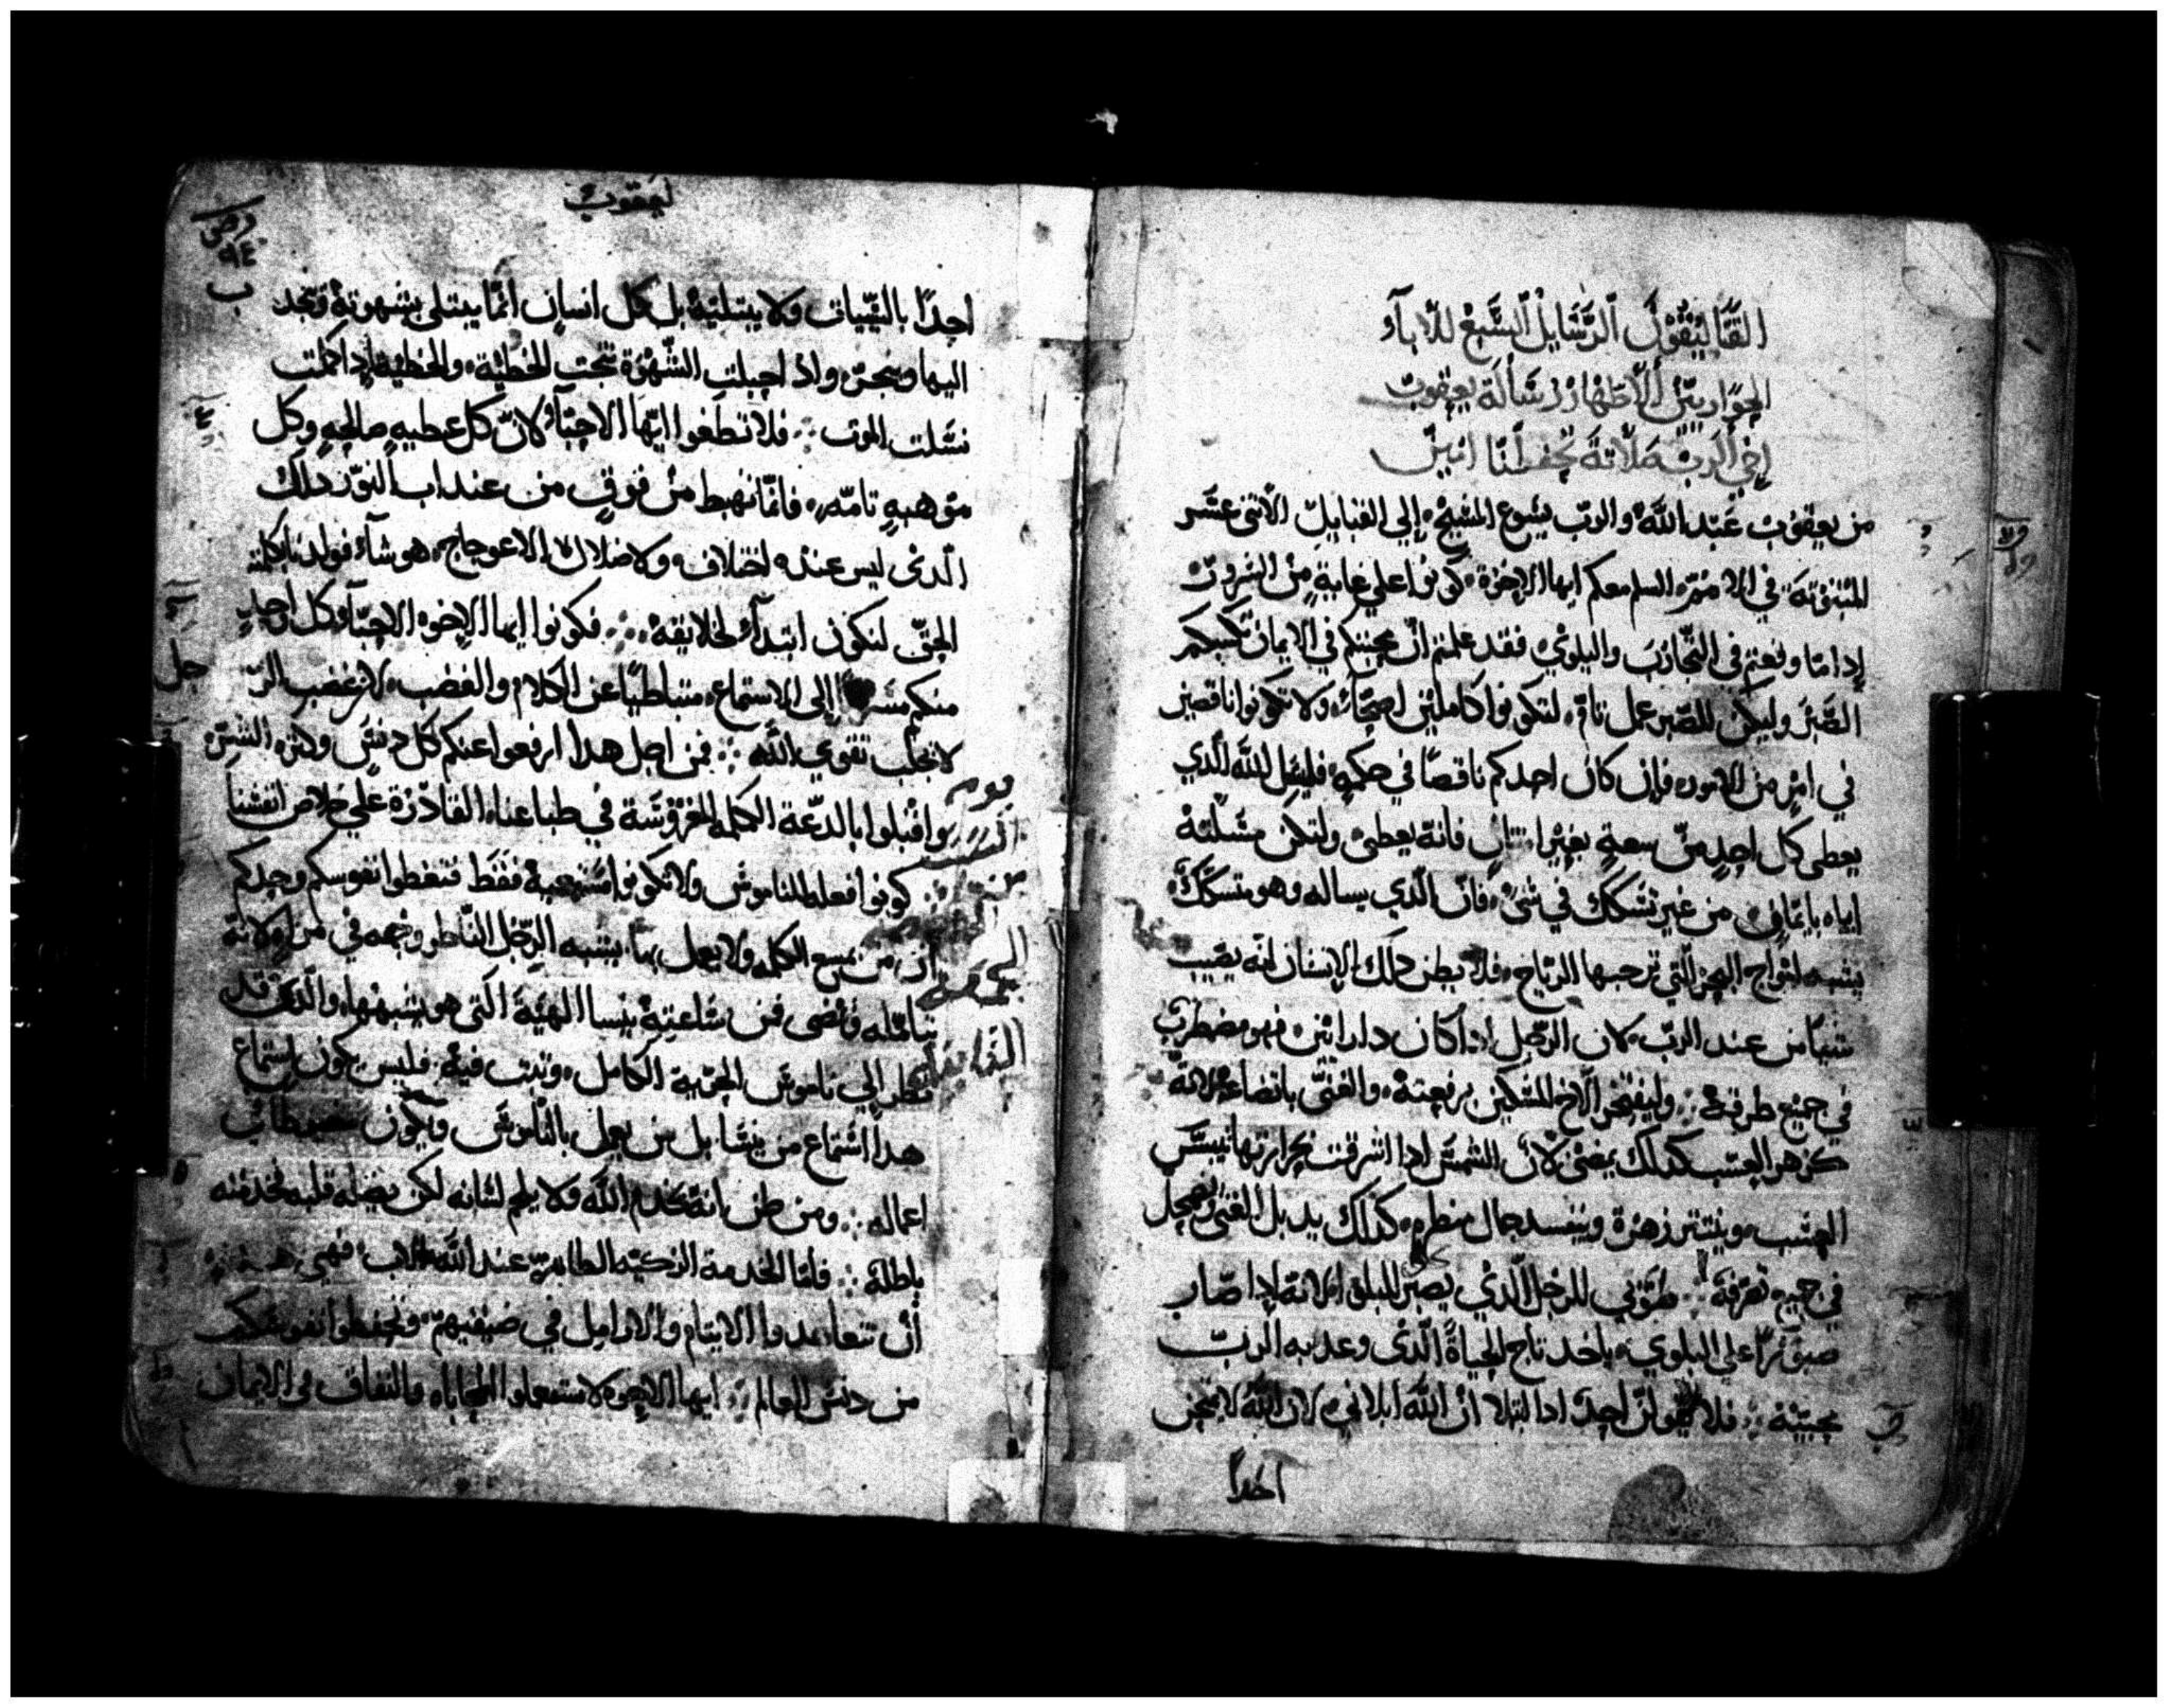 القتاليقون الرسايل السبع للاباء
الحواريين الاطهار رسالة يعقوب
اخي الرب صلاته تحفظنا امين
من يعقوب عبد الله والرب يسوع المسيح الي القبايل الاثنى عشر
المبثوثة في الامم السلم معكم ايها الاخوة كونوا علي غاية من السرور
ادا ما وقعتم في التجارب والبلوي فقد علمتم ان محنتكم في الايمان تكسبكم
الصبر وليكن للصبر عمل تام لتكونوا كاملين اصحاء ولا تكونوا ناقصين
في امر من الامور فان كان احدكم ناقصا في حكمه فليسل الله الدي
يعطى كل احد من سعة بغير امتنان فانه يعطى ولتكن مسلته
اياه بايمان من غير تشكك في شى فان الدي يساله وهو متشكك
يشبه امواج البحر التي ترجها الرياح فلا يظن دلك الانسان انه يصيب
شيا من عند الرب لان الرجل ادا كان دا رايين فهو مضطرب
في جميع طرقه وليفتخر الاخ المسكين برفعته والغنى باتضاعه لانه
كزهر العشب كدلك يمضى لان الشمس ادا اشرقت بحرارتها ييبس
العشب وينتثر زهره ويفسد جمال منظره كدلك يدبل الغنى
في جميع تصرفه طوبي للرجل الدي يصبر للبلوا لانه ادا صار
صبورا علي البلوي ياخد تاج الحياة الدى وعد به الرب
محبيه فلا يقولن احد ادا ابتلا ان الله ابلاني لان الله لا يمتحن
احدا
يعقوب
٩٤
ب
احدا بالسيات ولا يبتليه بل كل انسان انما يبتلى بشهوته وينجد
اليها وينجر واد احبلت الشهوة نتجت الخطية والخطية ادا كملت
نسلت الموت فلا تطغوا ايها الاحبا لان كل عطيه صالحه وكل
موهبه تامه فانما تهبط من فوق من عند اب النور دلك
الدى ليس عنده اختلاف ولا ضلال الاعوجاج هو شا فولدنا بكلمة
الحق لنكون ابتدا لخلايقه فكونوا ايها الاخوه الاحبا وكل احد
منكم الى الاستماع متباطيا عن الكلام والغضب لان غضب الرجل
لا تجلب تقوي الله فمن اجل هدا ارفعوا عنكم كل دنس وكثره الشر
واقبلوا بالدعة الكلمه المغروسة في طباعنا القادرة علي خلاص انفسنا
كونوا فعله للناموس ولا تكونوا مستمعيه فقط فتغطوا نفوسكم وحدكم
ان من يسمع الكلمه ولا يعمل بها يشبه الرجل الناظر وجهه في مراه لانه
تامله فامضى فمن ساعته ينسا الهية التى هو يشبهها والدى قد
نظر الي ناموس الحرية الكامل وثبت فيه فليس يكون استماع
هدا استماع من ينسا بل من يعمل بالناموس ويكون
اعماله ومن ظن انه يخدم الله ولا يلجم لسانه لكن يضله قلبه فخدمته
باطلة فاما الخدمة الزكيه الطاهرة عند الله الاب فهى هده
ان تتعاهدوا الايتام والارامل في ضيقهم وتحفظوا نفوسكم
من دنس العالم ايها الاخوه لا تستعملوا المحاباه والنفاق في الايمان